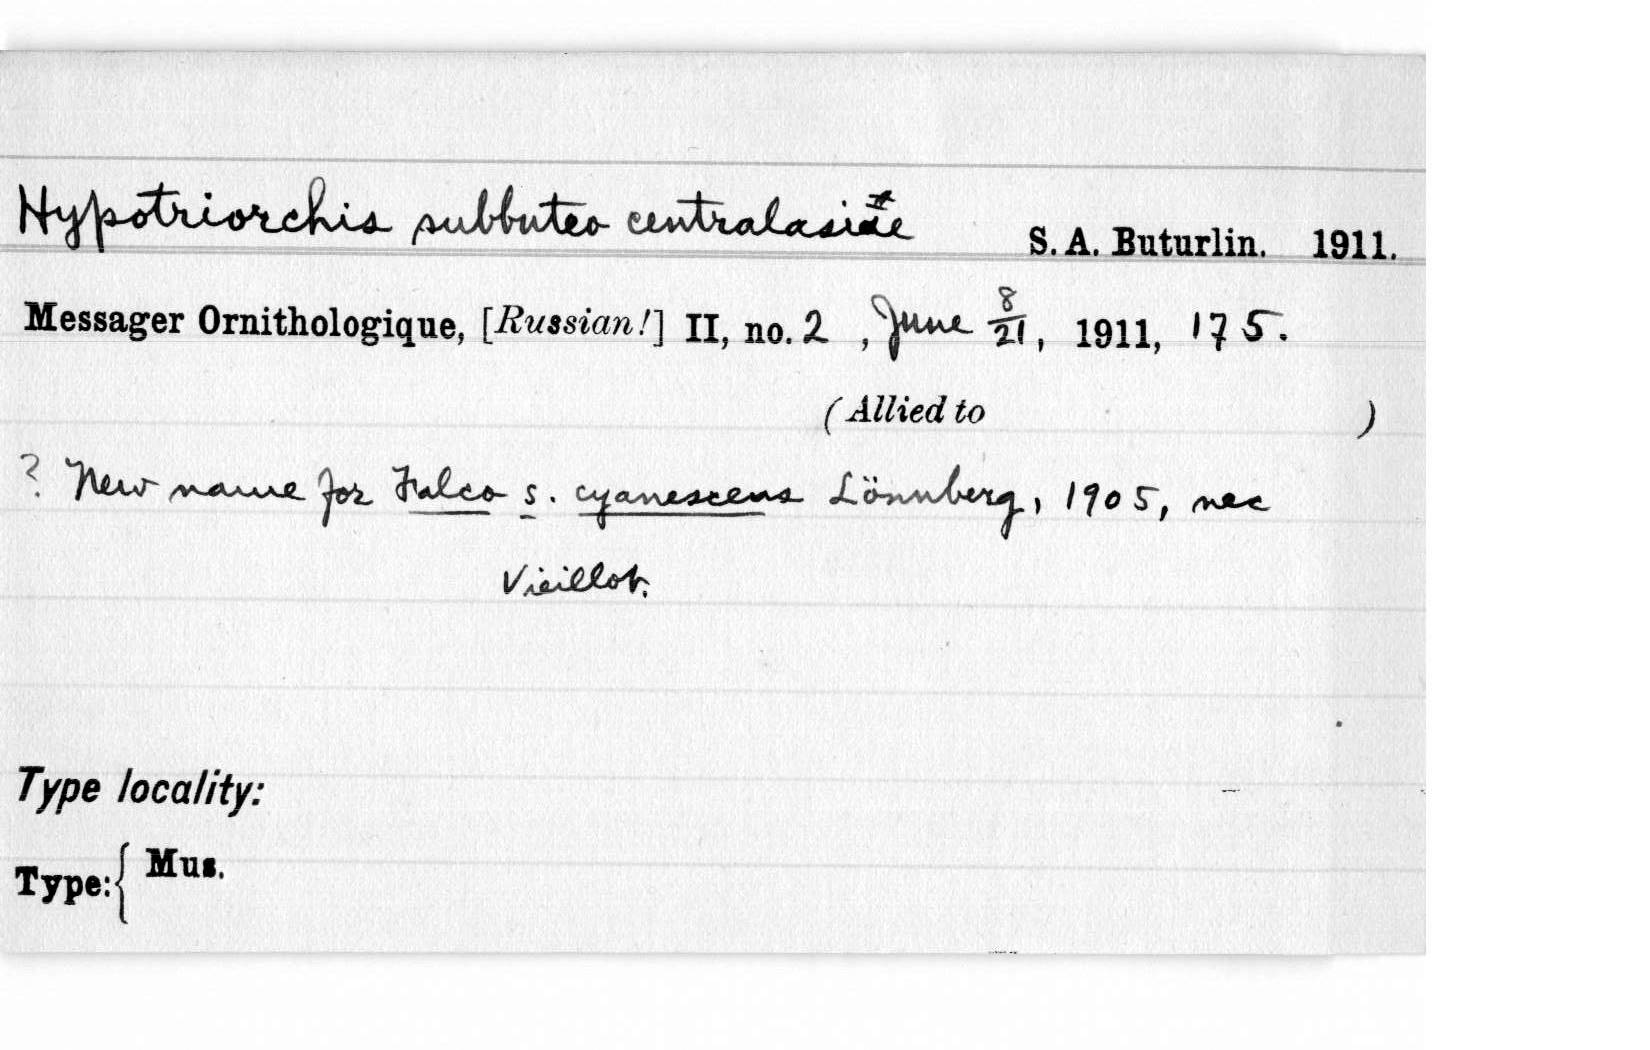 Hypotriorchis subbuteo centralasiae S. A. Buturlin. 1911.
Messager Ornithologique, [Russian!] II, no. 2 , June 8/21, 1911, 175.
(Allied to )
? New name for Falco s. cyanescens Lönnberg, 1905, nec
Vieillot.
Type locality:
Type: { Mus.